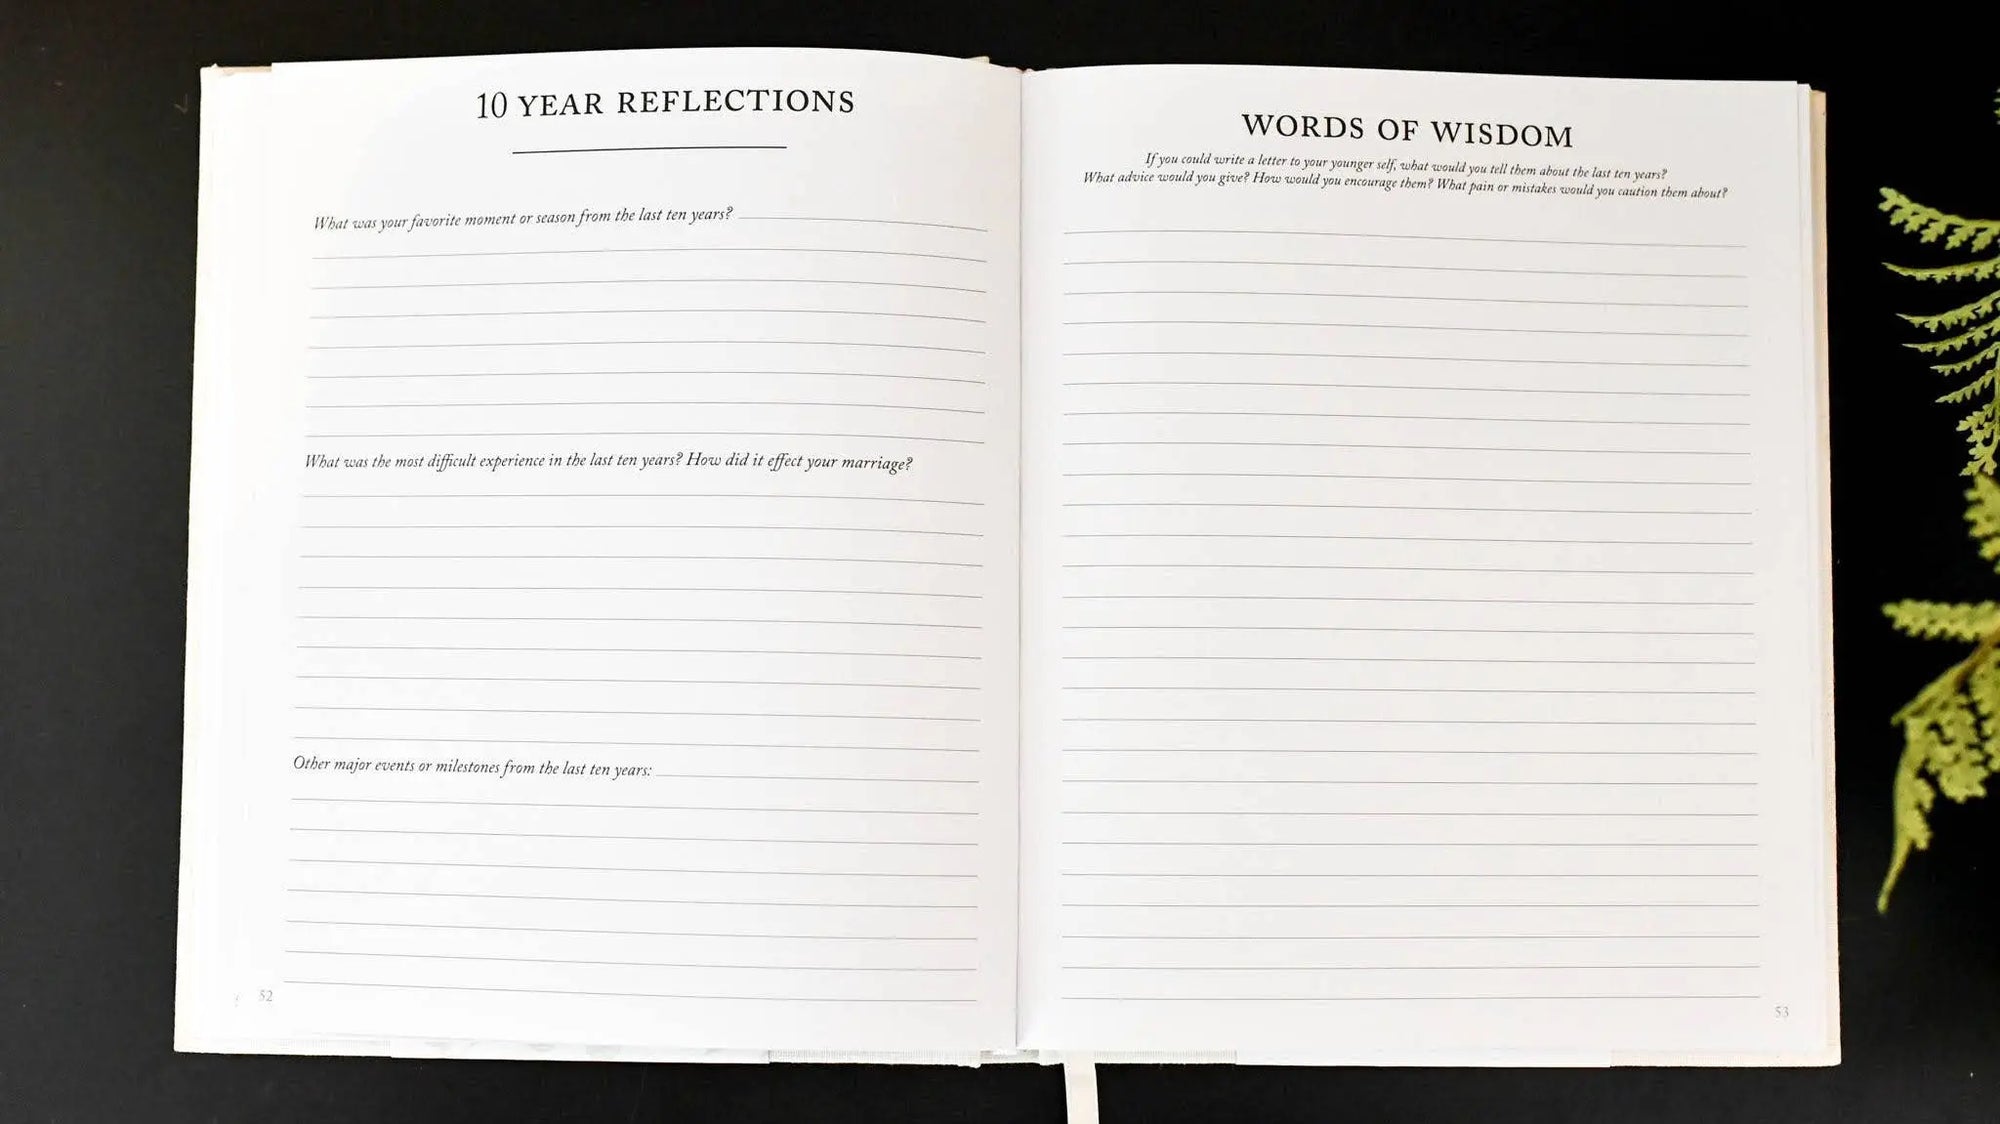 10 YEAR REFLECTIONS
What was your favorite moment or season from the last ten years?
What was the most difficult experience in the last ten years? How did it effect your marriage?
Other major events or milestones from the last ten years:
52
WORDS OF WISDOM
If you could write a letter to your younger self, what would you tell them about the last ten years?
What advice would you give? How would you encourage them? What pain or mistakes would you caution them about?
53